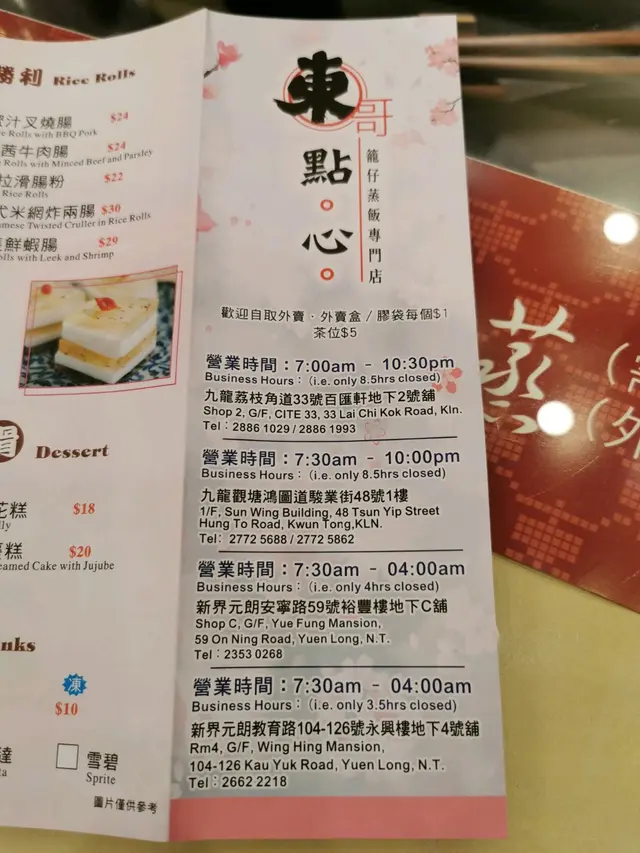 勝利 Rice Rolls
汁叉燒腸 $24
Rolls with BBQ Pork
茜牛肉腸 $24
Rolls with Minced Beef and Parsley
拉滑腸粉 $22
Rice Rolls
式米網炸兩腸 $30
Twisted Cruller in Rice Rolls
鮮蝦腸 $29
Rolls with Leek and Shrimp
Dessert
花糕 $18
糕 $20
Steamed Cake with Jujube
凍
$10
雪碧
Sprite
圖片僅供參考
東哥
點心
籠仔蒸飯專門店
歡迎自取外賣・外賣盒/膠袋每個$1
茶位$5
營業時間：7:00am - 10:30pm
Business Hours：（i.e. only 8.5hrs closed)
九龍荔枝角道33號百匯軒地下2號舖
Shop 2, G/F, CITE 33, 33 Lai Chi Kok Road, Kln.
Tel：2886 1029 / 2886 1993
營業時間：7:30am - 10:00pm
Business Hours：（i.e. only 8.5hrs closed)
九龍觀塘鴻圖道駿業街48號1樓
1/F, Sun Wing Building, 48 Tsun Yip Street
Hung To Road, Kwun Tong,KLN.
Tel: 2772 5688 / 2772 5862
營業時間：7:30am - 04:00am
Business Hours：（i.e. only 4hrs closed)
新界元朗安寧路59號裕豐樓地下C舖
Shop C, G/F, Yue Fung Mansion,
59 On Ning Road, Yuen Long, N.T.
Tel：2353 0268
營業時間：7:30am - 04:00am
Business Hours：（i.e. only 3.5hrs closed)
新界元朗教育路104-126號永興樓地下4號舖
Rm4, G/F, Wing Hing Mansion,
104-126 Kau Yuk Road, Yuen Long, N.T.
Tel：2662 2218
蒸
(外